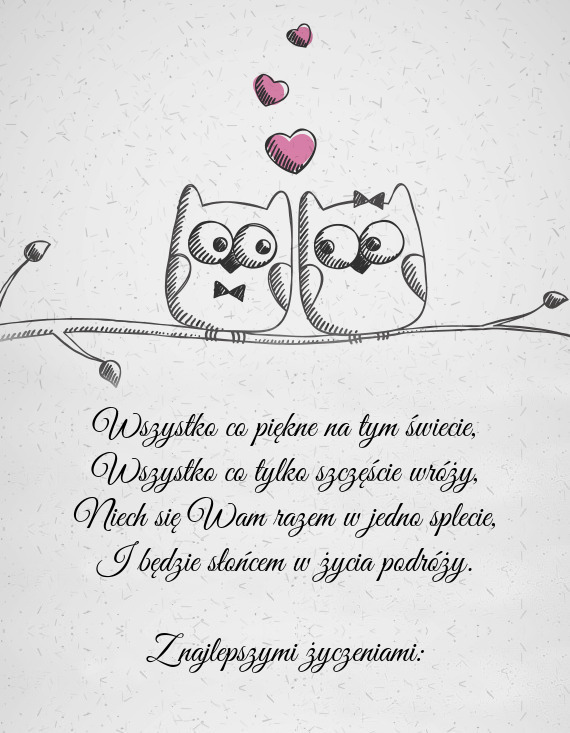 Wszystko co piękne na tym świecie,
Wszystko co tylko szczęście wróży,
Niech się Wam razem w jedno splecie,
I będzie słońcem w życia podróży.
Znajlepszymi życzeniami: